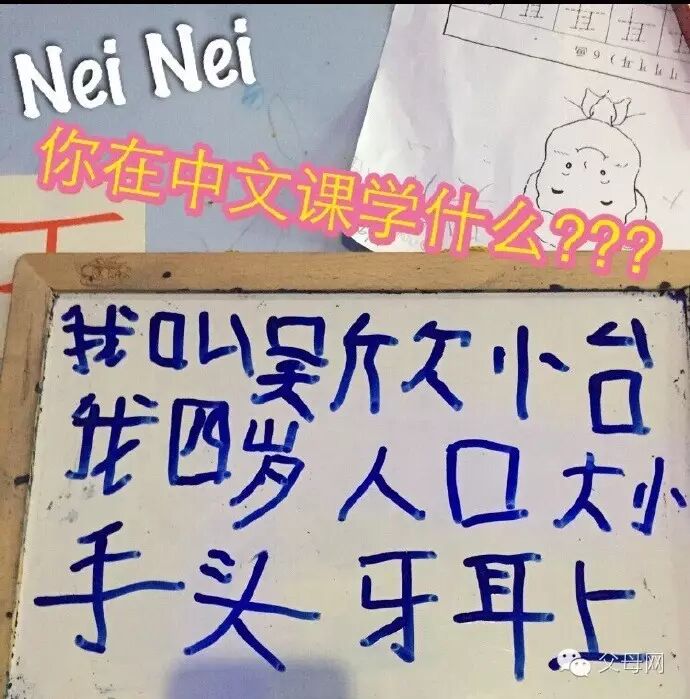 Nei Nei
你在中文课学什么???
我叫吴欣怡
我四岁 人口大小
手头 牙耳上
父母网